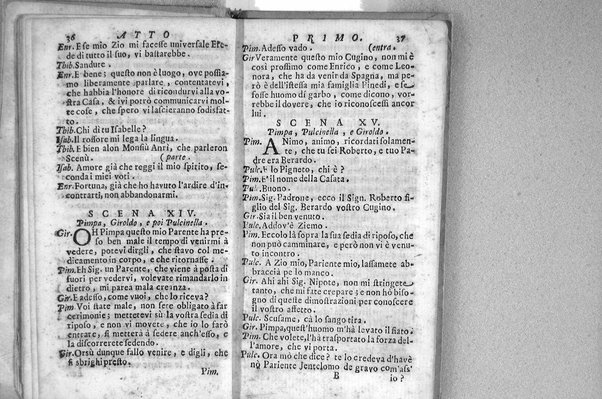 36 ATTO
Enr. E se mio Zio mi facesse universale Ere-
de di tutto il suo, vi bastarebbe.
Thib. Sandure.
Enr. E bene; questo non è luogo, ove possia-
mo liberamente parlare, contentatevi,
che habbia l'honore di ricondurvi alla vo-
stra Casa, & ivi potrò communicarvi mol-
te cose, che spero vi lascieranno sodisfat-
to.
Thib. Chi di tu Isabelle?
Isab. Il rossore mi lega la lingua.
Thib. E bien alon Monsiù Anri, che parleron
Scenù. (parte.
Isab. Amore già che reggi il mio spirito, se-
conda i miei voti.
Enr. Fortuna, già che ho havuto l'ardire d'in-
contrarti, non abbandonarmi.
SCENA XIV.
Pimpa, Giroldo, e poi Pulcinella.
Gir. OH Pimpa questo mio Parente ha pre-
so ben male il tempo di venirmi à
vedere, potevi dirgli, che stavo col me-
dicamento in corpo, e che ritornasse.
Pim. Eh Sig. un Parente, che viene à posta di
fuori per vedervi, volevate rimandarlo in
dietro, mi parea mala creanza.
Gir. E adesso, come vuoi, che lo riceva?
Pim. Voi state male, non sete obligato à far
cerimonie; mettetevi sù la vostra sedia di
riposo, e non vi movete, che io lo farò
entrare, si metterà à sedere anch'esso, e
la discorrerete sedendo.
Gir. Orsù dunque fallo venire, e digli, che
si sbrighi presto.
Pim.
PRIMO. 37
Pim. Adesso vado. (entra.
Gir Veramente questo mio Cugino, non mi è
così prossimo come Enrico, e come Leo-
nora, che ha da venir da Spagna, ma pe-
rò è dell'istessa mia famiglia Pinedi, e se
fosse huomo di garbo, come dicono, vor-
rebbe il dovere, che io riconoscessi ancor
lui.
SCENA XV.
Pimpa, Pulcinella, e Giroldo.
Pim. ANimo, animo, ricordati solamen-
te, che tu sei Roberto, e tuo Pa-
dre era Berardo.
Pulc. E lo Pigneto, chi è?
Pim. E'il nome della Casata.
Pulc. Buono.
Pim. Sig. Padrone, ecco il Sign. Roberto fi-
glio del Sig. Berardo vostro Cugino.
Gir. Sia il ben venuto.
Pulc. Addov'è Ziemo.
Pim. Eccolo là sopra la sua sedia di riposo, che
non può camminare, e però non vi è venu-
to incontro.
Pulc. A Zio mio, Pariente mio, lassamete ab-
braccià pe lo manco.
Gir. Ahi ahi Sig. Nipote, non mi stringete
tanto, che mi fate crepare; e non hò biso-
gno di queste dimostrazioni per conoscere
il vostro affetto.
Pulc. Scusame, cà lo sango tira.
Gir. Pimpa, quest'huomo m'hà levato il fiato.
Pim. Che volete, l'hà trasportato la forza del-
l'amore, che vi porta.
Pulc. Ora mò che dice? te lo credeva d'havè
no Pariente Jentelomo de gravo com'ass'
B io?